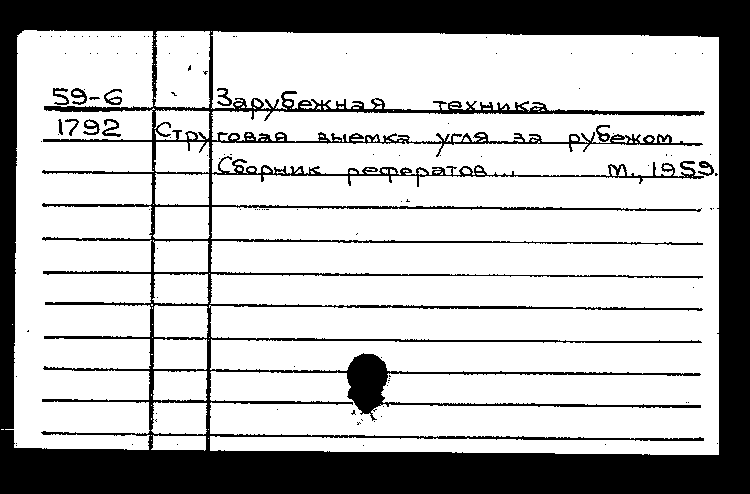 59-6 Зарубежная техника
1792 Струговая выемка угля за рубежом.
Сборник рефератов... м., 1959.